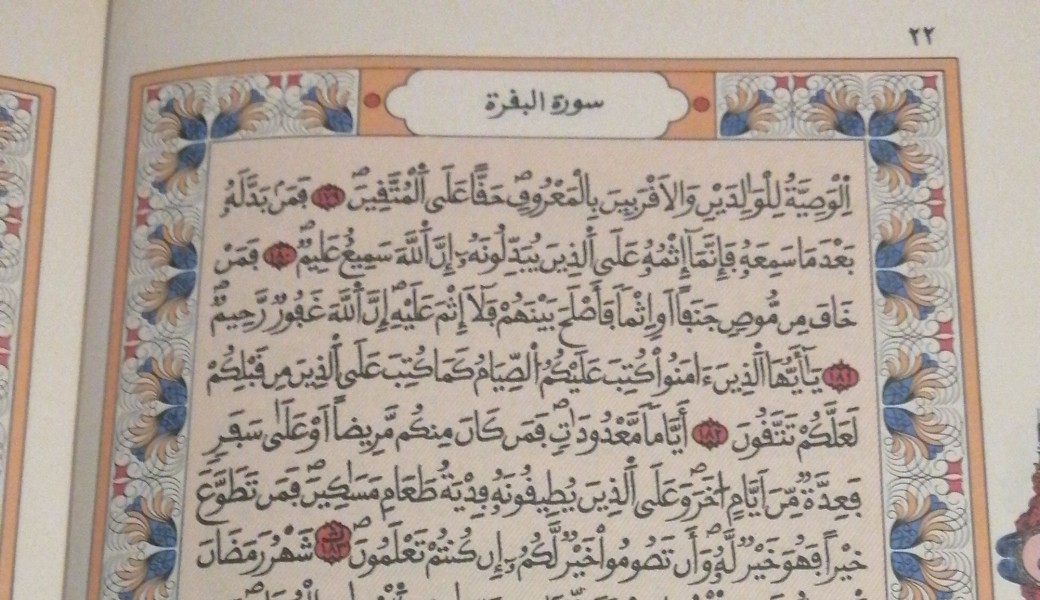 ٢٢
سورة البفرة
اِ۬لْوَصِيَّةُ لِلْوَٰلِدَيْنِ وَالَاقْرَبِينَ بِالْمَعْرُوفِۖ حَقّاً عَلَى اَ۬لْمُتَّقِينَۖ ١٧٩ فَمَنۢ بَدَّلَهُۥ
بَعْدَ مَا سَمِعَهُۥ فَإِنَّمَآ إِثْمُهُۥ عَلَى اَ۬لذِينَ يُبَدِّلُونَهُۥٓۖ إِنَّ اَ۬للَّهَ سَمِيعٌ عَلِيمٌۖ ١٨٠ فَمَنْ
خَافَ مِن مُّوصٖ جَنَفاً اَوِ اِثْماً فَأَصْلَحَ بَيْنَهُمْ فَلَآ إِثْمَ عَلَيْهِۖ إِنَّ اَ۬للَّهَ غَفُورٞ رَّحِيمٞۖ
١٨١ يَٰٓأَيُّهَا اَ۬لذِينَ ءَامَنُواْ كُتِبَ عَلَيْكُمُ اُ۬لصِّيَامُ كَمَا كُتِبَ عَلَى اَ۬لذِينَ مِن قَبْلِكُمْ
لَعَلَّكُمْ تَتَّقُونَ ١٨٢ أَيَّاماً مَّعْدُودَٰتٖۖ فَمَن كَانَ مِنكُم مَّرِيضاً اَوْ عَلَىٰ سَفَرٖ
فَعِدَّةٞ مِّنَ اَيَّامٍ اُخَرَۖ وَعَلَى اَ۬لذِينَ يُطِيقُونَهُۥ فِدْيَةُ طَعَامِ مَسَٰكِينَۖ فَمَن تَطَوَّعَ
خَيْراً فَهُوَ خَيْرٞ لَّهُۥۖ وَأَن تَصُومُواْ خَيْرٞ لَّكُمُۥٓ إِن كُنتُمْ تَعْلَمُونَۖ ١٨٣ شَهْرُ رَمَضَانَ